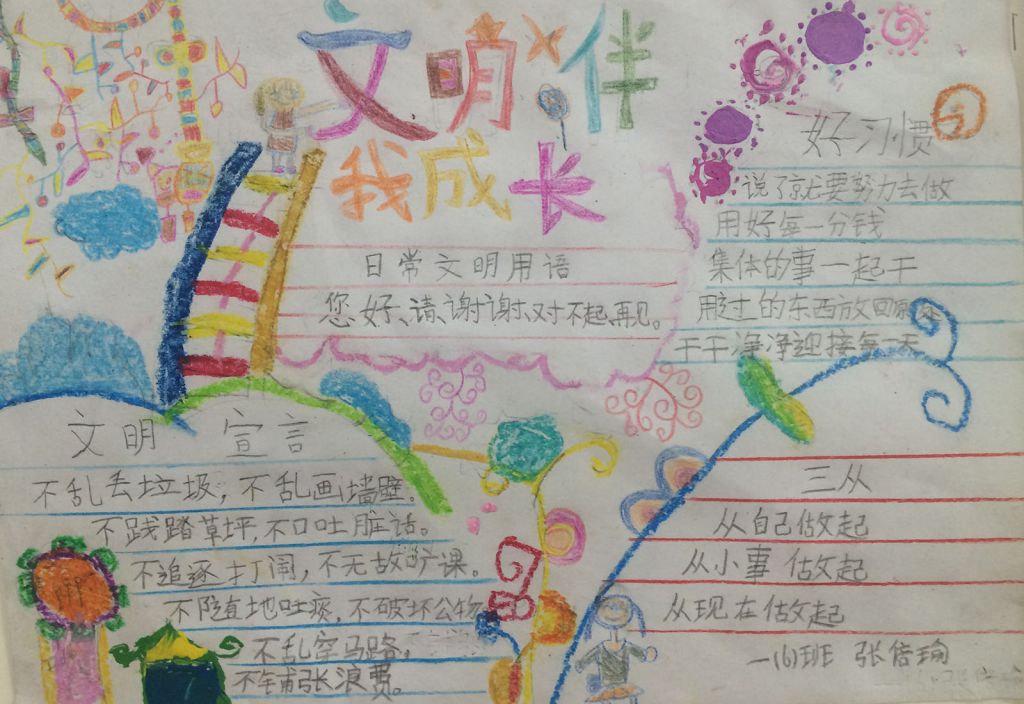 文明伴
我成长
日常文明用语
您好、请、谢谢、对不起、再见。
好习惯
说了就要努力去做
用好每一分钱
集体的事一起干
用过的东西放回原处
干干净净迎接每一天
文明宣言
不乱丢垃圾，不乱画墙壁。
不践踏草坪，不口吐脏话。
不追逐打闹，不无故旷课。
不随地吐痰，不破坏公物
不乱穿马路。
不铺张浪费。
三从
从自己做起
从小事做起
从现在做起
一(6)班 张